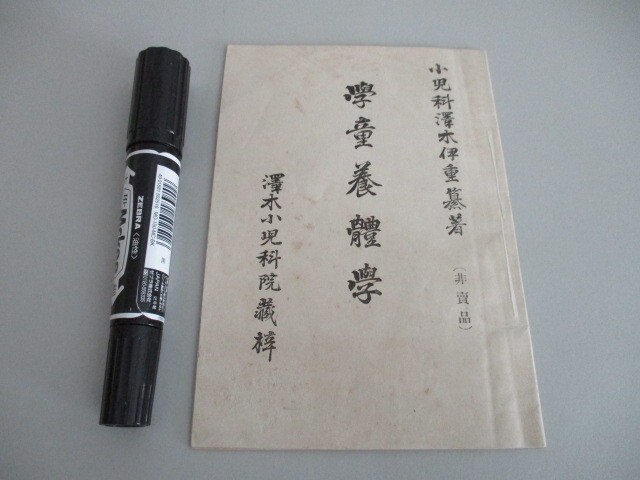 小児科澤木伊重纂著
(非賣品)
學童養體學
澤木小児科院藏梓
ZEBRA〈油性〉